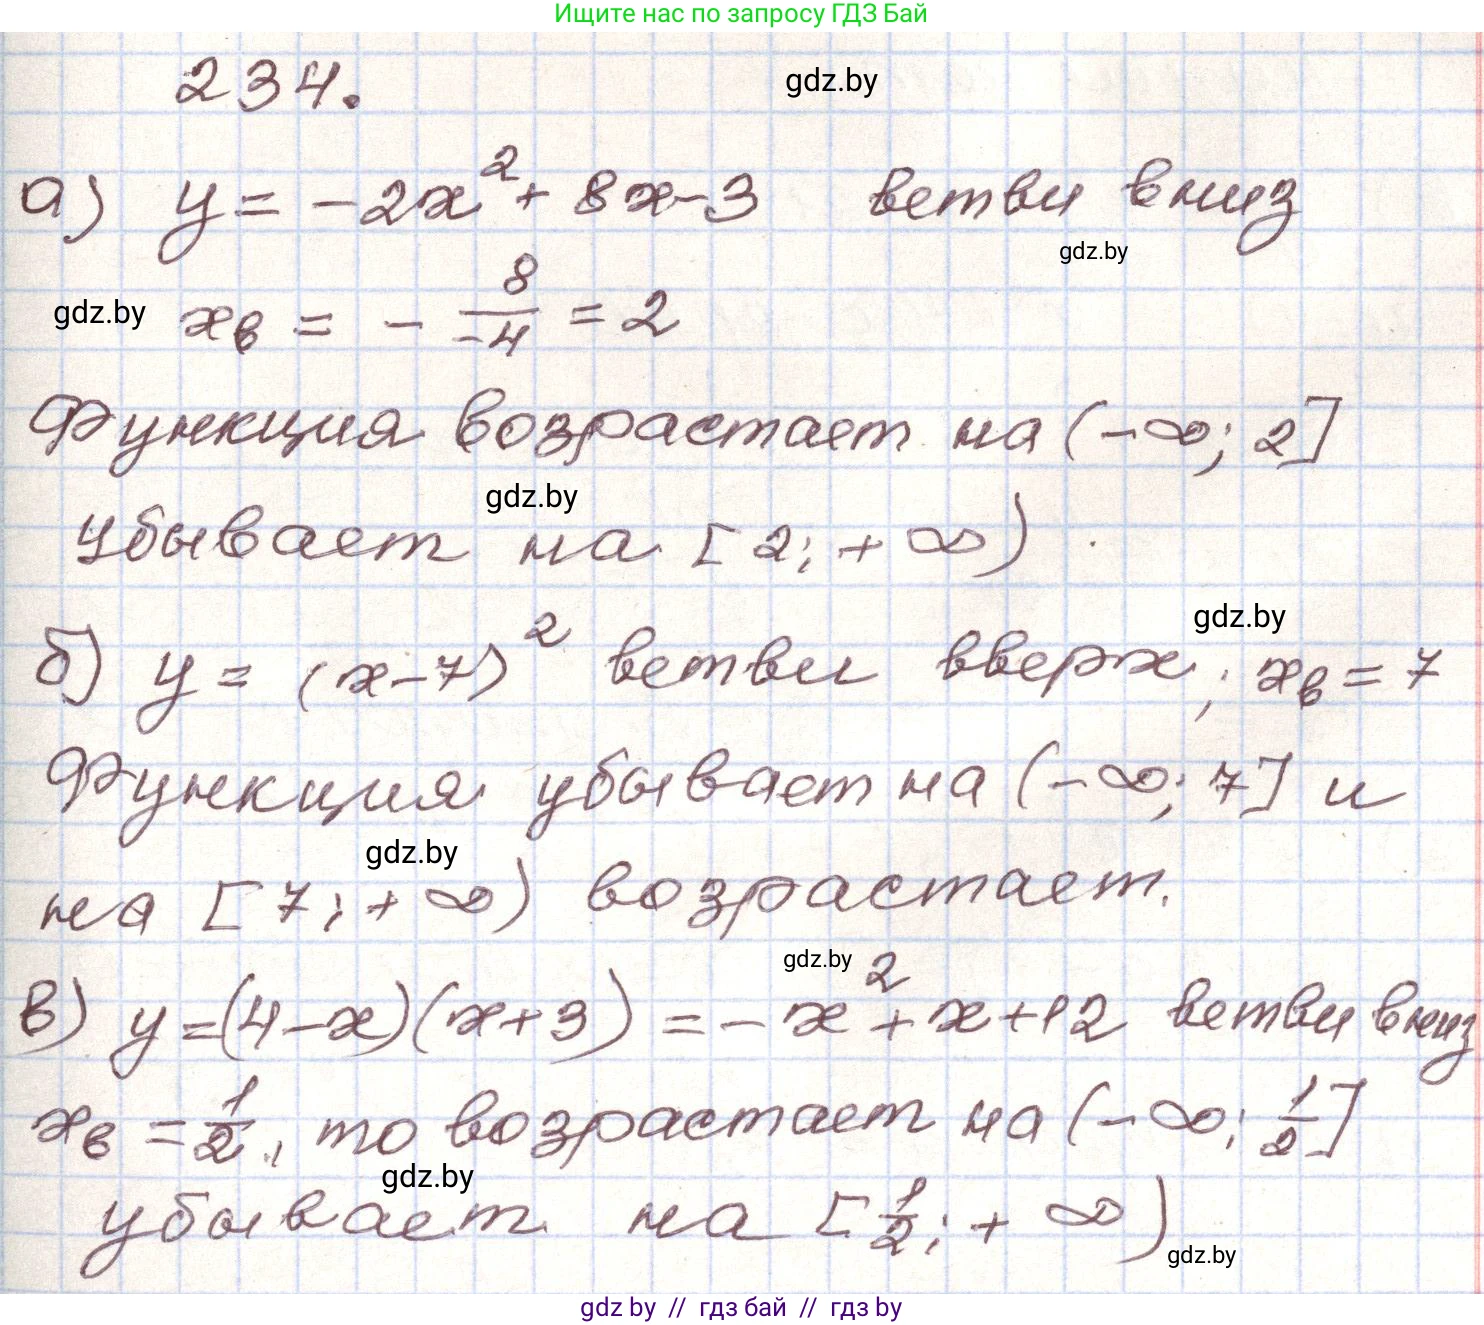 Ищите нас по запросу ГДЗ Бай
234.
gdz.by
а) y = -2x² + 8x - 3 ветви вниз
gdz.by
gdz.by xв = - 8/-4 = 2
Функция возрастает на (-∞; 2]
gdz.by
убывает на [2; +∞)
gdz.by
б) y = (x-7)² ветви вверх; xв = 7
Функция убывает на (-∞; 7] и
gdz.by
на [7; +∞) возрастает.
gdz.by
в) y = (4-x)(x+3) = -x² + x + 12 ветви вниз
xв = 1/2, то возрастает на (-∞; 1/2]
gdz.by
убывает на [1/2; +∞)
gdz.by
gdz by // гдз бай // гдз by